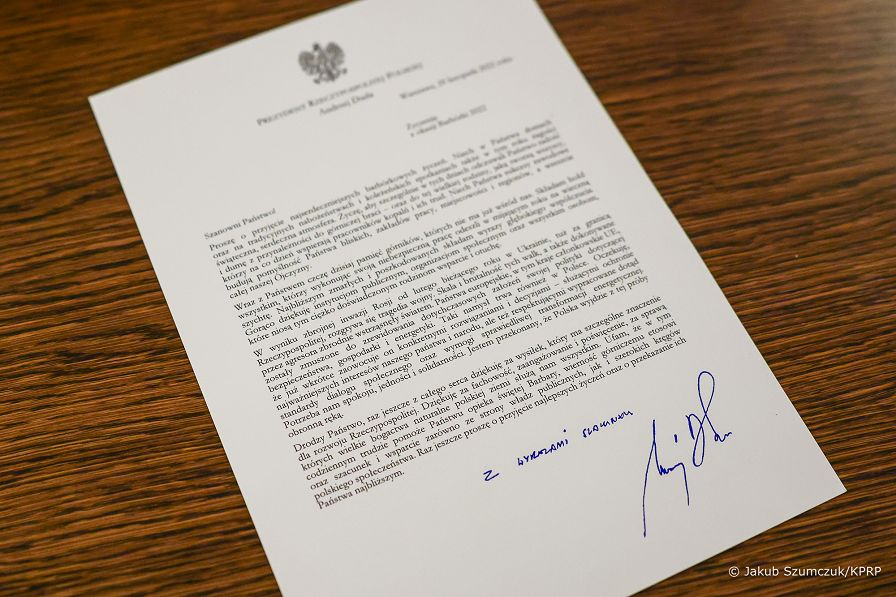 PREZYDENT RZECZYPOSPOLITEJ POLSKIEJ
Andrzej Duda
Warszawa, 29 listopada 2022 roku
Życzenia
z okazji Barbórki 2022
Szanowni Państwo!
Proszę o przyjęcie najserdeczniejszych barbórkowych życzeń. Niech w Państwa domach
oraz na tradycyjnych nabożeństwach i koleżeńskich spotkaniach także w tym roku zagości
świąteczna, serdeczna atmosfera. Życzę, aby szczególnie w tych dniach odczuwali Państwo radość
i dumę z przynależności do górniczej braci – oraz do tej wielkiej rodziny, jaką tworzą wszyscy,
którzy na co dzień wspierają pracowników kopalń i ich trud. Niech Państwa sukcesy zawodowe
budują pomyślność Państwa bliskich, zakładów pracy, miejscowości i regionów, a wreszcie
całej naszej Ojczyzny.
Wraz z Państwem czczę dzisiaj pamięć górników, których nie ma już wśród nas. Składam hołd
wszystkim, którzy wykonując swoją niebezpieczną pracę odeszli w mijającym roku na wieczną
szychtę. Najbliższym zmarłych i poszkodowanych składam wyrazy głębokiego współczucia.
Gorąco dziękuję instytucjom publicznym, organizacjom społecznym oraz wszystkim osobom,
które niosą tym ciężko doświadczonym rodzinom wsparcie i otuchę.
W wyniku zbrojnej inwazji Rosji od lutego bieżącego roku w Ukrainie, tuż za granicą
Rzeczypospolitej, rozgrywa się tragedia wojny. Skala i brutalność tych walk, a także dokonywane
przez agresora zbrodnie wstrząsnęły światem. Państwa europejskie, w tym kraje członkowskie UE,
zostały zmuszone do zrewidowania dotychczasowych założeń swojej polityki dotyczącej
bezpieczeństwa, gospodarki i energetyki. Taki namysł trwa również w Polsce. Oczekuję,
że już wkrótce zaowocuje on konkretnymi rozwiązaniami i decyzjami – służącymi ochronie
najważniejszych interesów naszego Państwa i narodu, ale też respektującymi wypracowane dotąd
standardy dialogu społecznego oraz wymogi sprawiedliwej transformacji energetycznej.
Potrzeba nam spokoju, jedności i solidarności. Jestem przekonany, że Polska wyjdzie z tej próby
obronną ręką.
Drodzy Państwo, raz jeszcze z całego serca dziękuję za wysiłek, który ma szczególne znaczenie
dla rozwoju Rzeczypospolitej. Dziękuję za fachowość, zaangażowanie i poświęcenie, za sprawą
których wielkie bogactwa naturalne polskiej ziemi służą nam wszystkim. Ufam, że w tym
codziennym trudzie pomoże Państwu opieka świętej Barbary, wierność górniczemu etosowi
oraz szacunek i wsparcie zarówno ze strony władz publicznych, jak i szerokich kręgów
polskiego społeczeństwa. Raz jeszcze proszę o przyjęcie najlepszych życzeń oraz o przekazanie ich
Państwa najbliższym.
Z WYRAZAMI SZACUNKU
© Jakub Szumczuk/KPRP